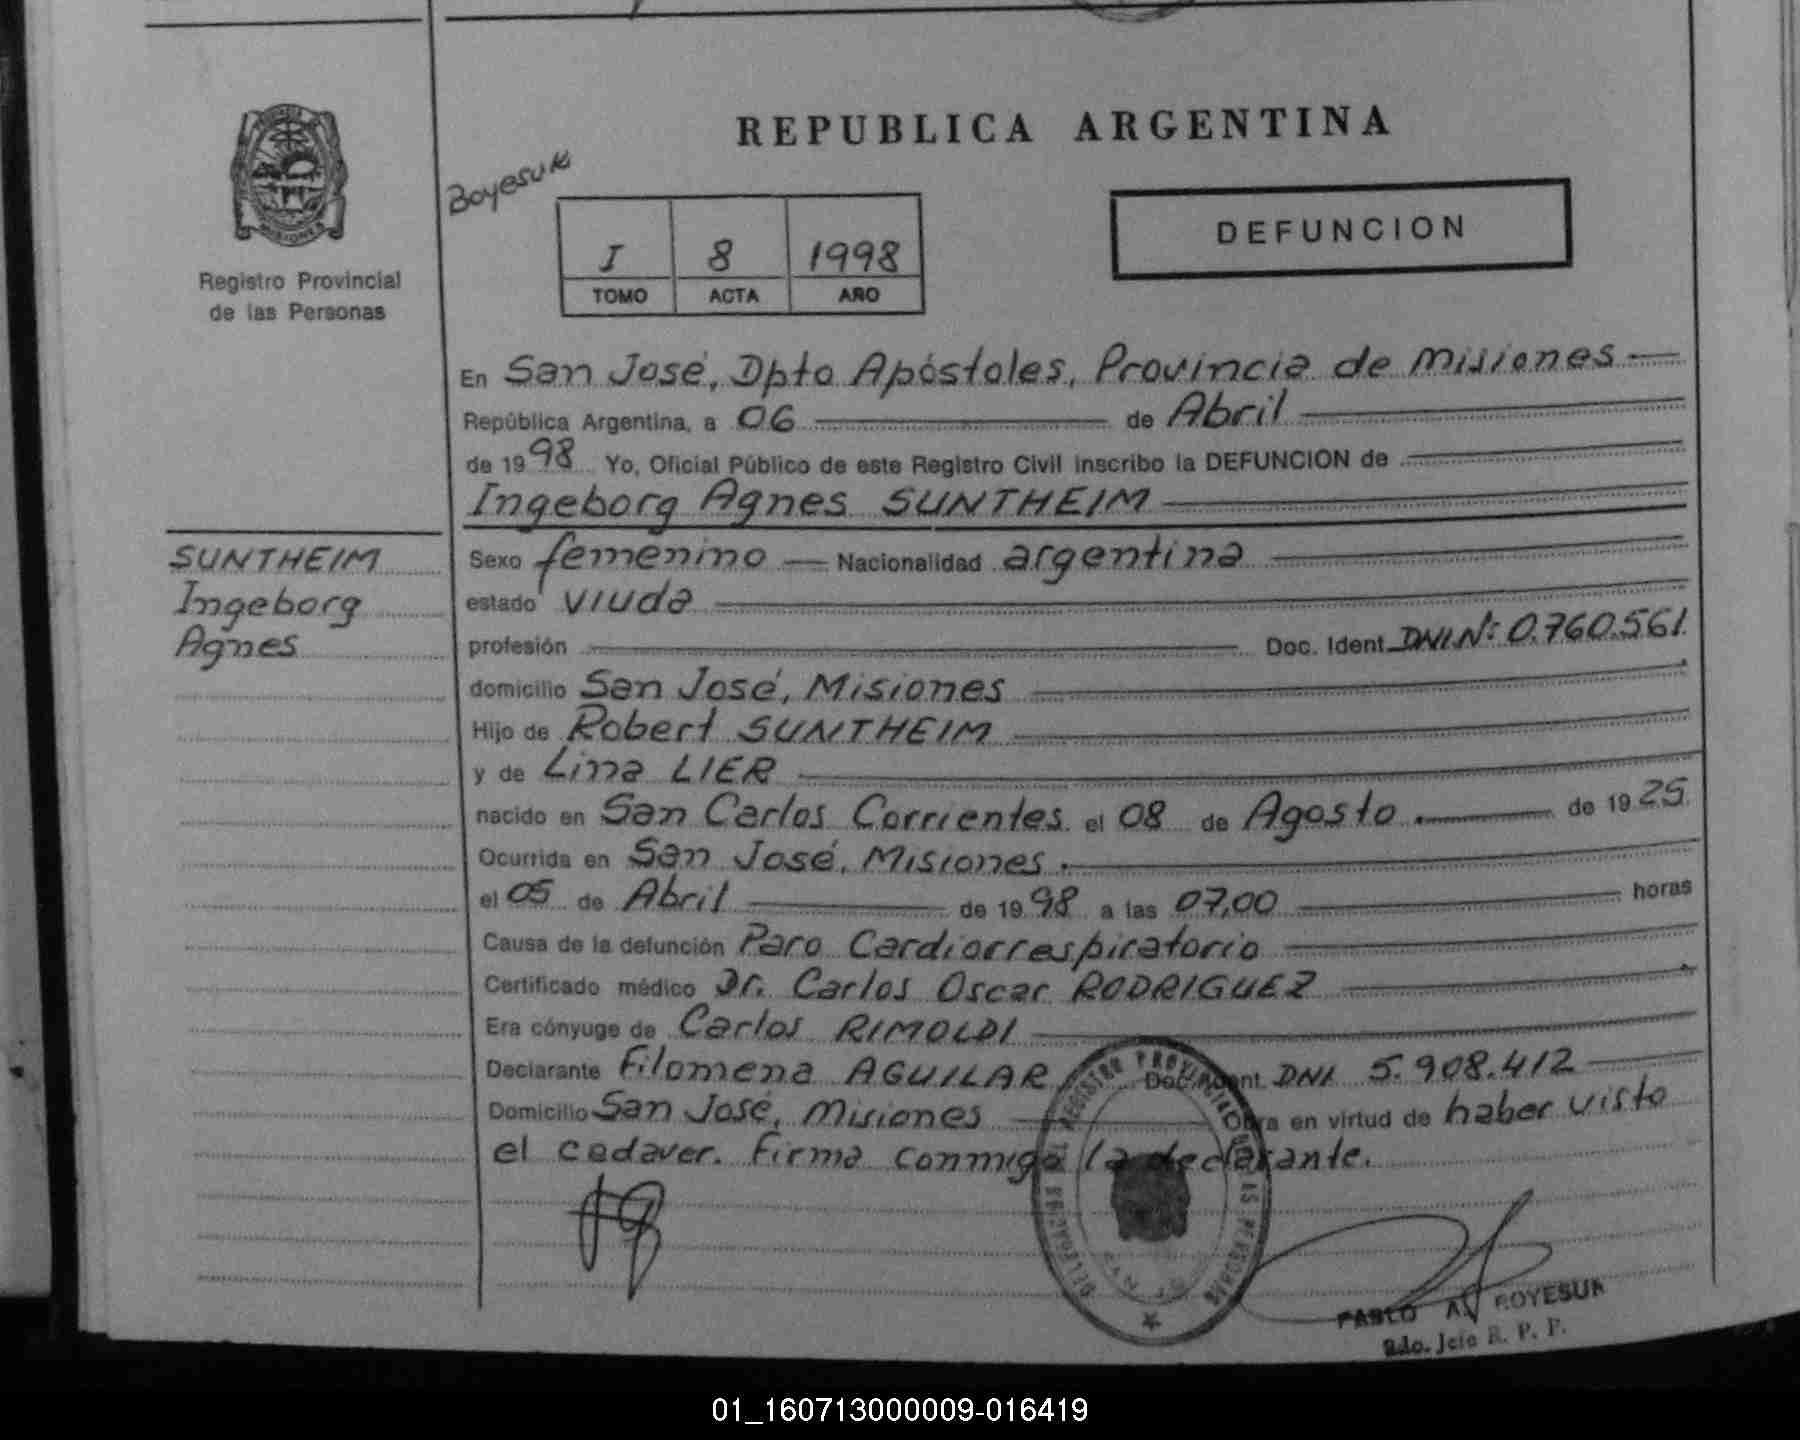 REPUBLICA ARGENTINA
Boyesuk
I 8 1998
TOMO ACTA AÑO
DEFUNCION
MISIONES
Registro Provincial
de las Personas
En San José, Dpto Apóstoles, Provincia de Misiones
República Argentina, a 06 de Abril
de 1998 Yo, Oficial Público de este Registro Civil inscribo la DEFUNCION de
Ingeborg Agnes SUNTHEIM
SUNTHEIM
Ingeborg
Agnes
Sexo femenino Nacionalidad argentina
estado viuda
profesión Doc. Ident. DNI.Nº: 0.760.561.
domicilio San José, Misiones
Hijo de Robert SUNTHEIM
y de Lina LIER
nacido en San Carlos Corrientes el 08 de Agosto de 1925.
Ocurrida en San José, Misiones.
el 05 de Abril de 1998 a las 07,00 horas
Causa de la defunción Paro Cardiorrespiratorio
Certificado médico Dr. Carlos Oscar RODRIGUEZ
Era cónyuge de Carlos RIMOLDI
Declarante Filomena AGUILAR Doc. Ident. DNI 5.908.412
Domicilio San José, Misiones Obra en virtud de haber visto
el cadaver. Firma conmigo la declarante.
DELEGACION REGISTRO PROVINCIAL DE LAS PERSONAS
SAN JOSE
PABLO A. BOYESUK
R. P. P.
01_160713000009-016419